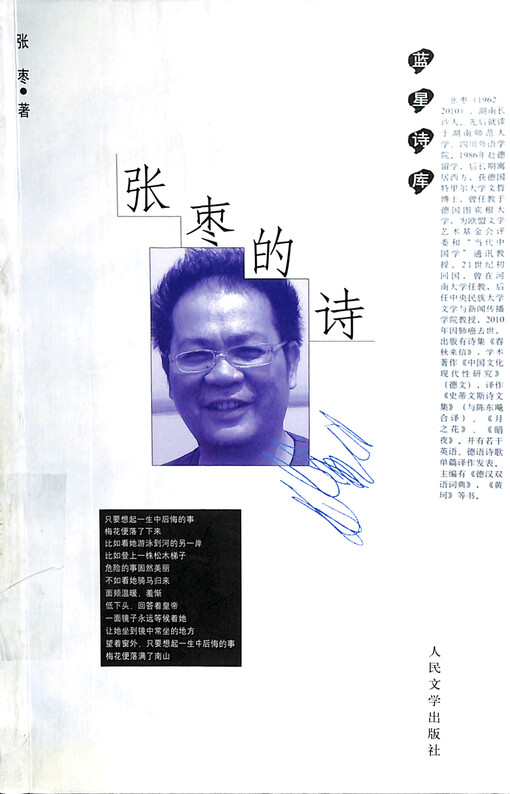 张枣●著
蓝星诗库
张枣的诗
张枣（1962
2010），湖南长
沙人。先后就读
于湖南师范大
学、四川外语学
院。1986年赴德
留学，后长期寓
居西方，获德国
特里尔大学文哲
博士，曾任教于
德国图宾根大
学，为欧盟文学
艺术基金会评
委和“当代中
国学”通讯教
授。21世纪初
回国，曾在河
南大学任教，后
任中央民族大学
文学与新闻传播
学院教授。2010
年因肺癌去世。
出版有诗集《春
秋来信》，学术
著作《中国文化
现代性研究》
（德文），译作
《史蒂文斯诗文
集》（与陈东飚
合译）、《月
之花》、《暗
夜》。并有若干
英语、德语诗歌
单篇译作发表。
主编有《德汉双
语词典》，《黄
珂》等书。
只要想起一生中后悔的事
梅花便落了下来
比如看她游泳到河的另一岸
比如登上一株松木梯子
危险的事固然美丽
不如看她骑马归来
面颊温暖，羞惭
低下头，回答着皇帝
一面镜子永远等候着她
让她坐到镜中常坐的地方
望着窗外，只要想起一生中后悔的事
梅花便落满了南山
人民文学出版社